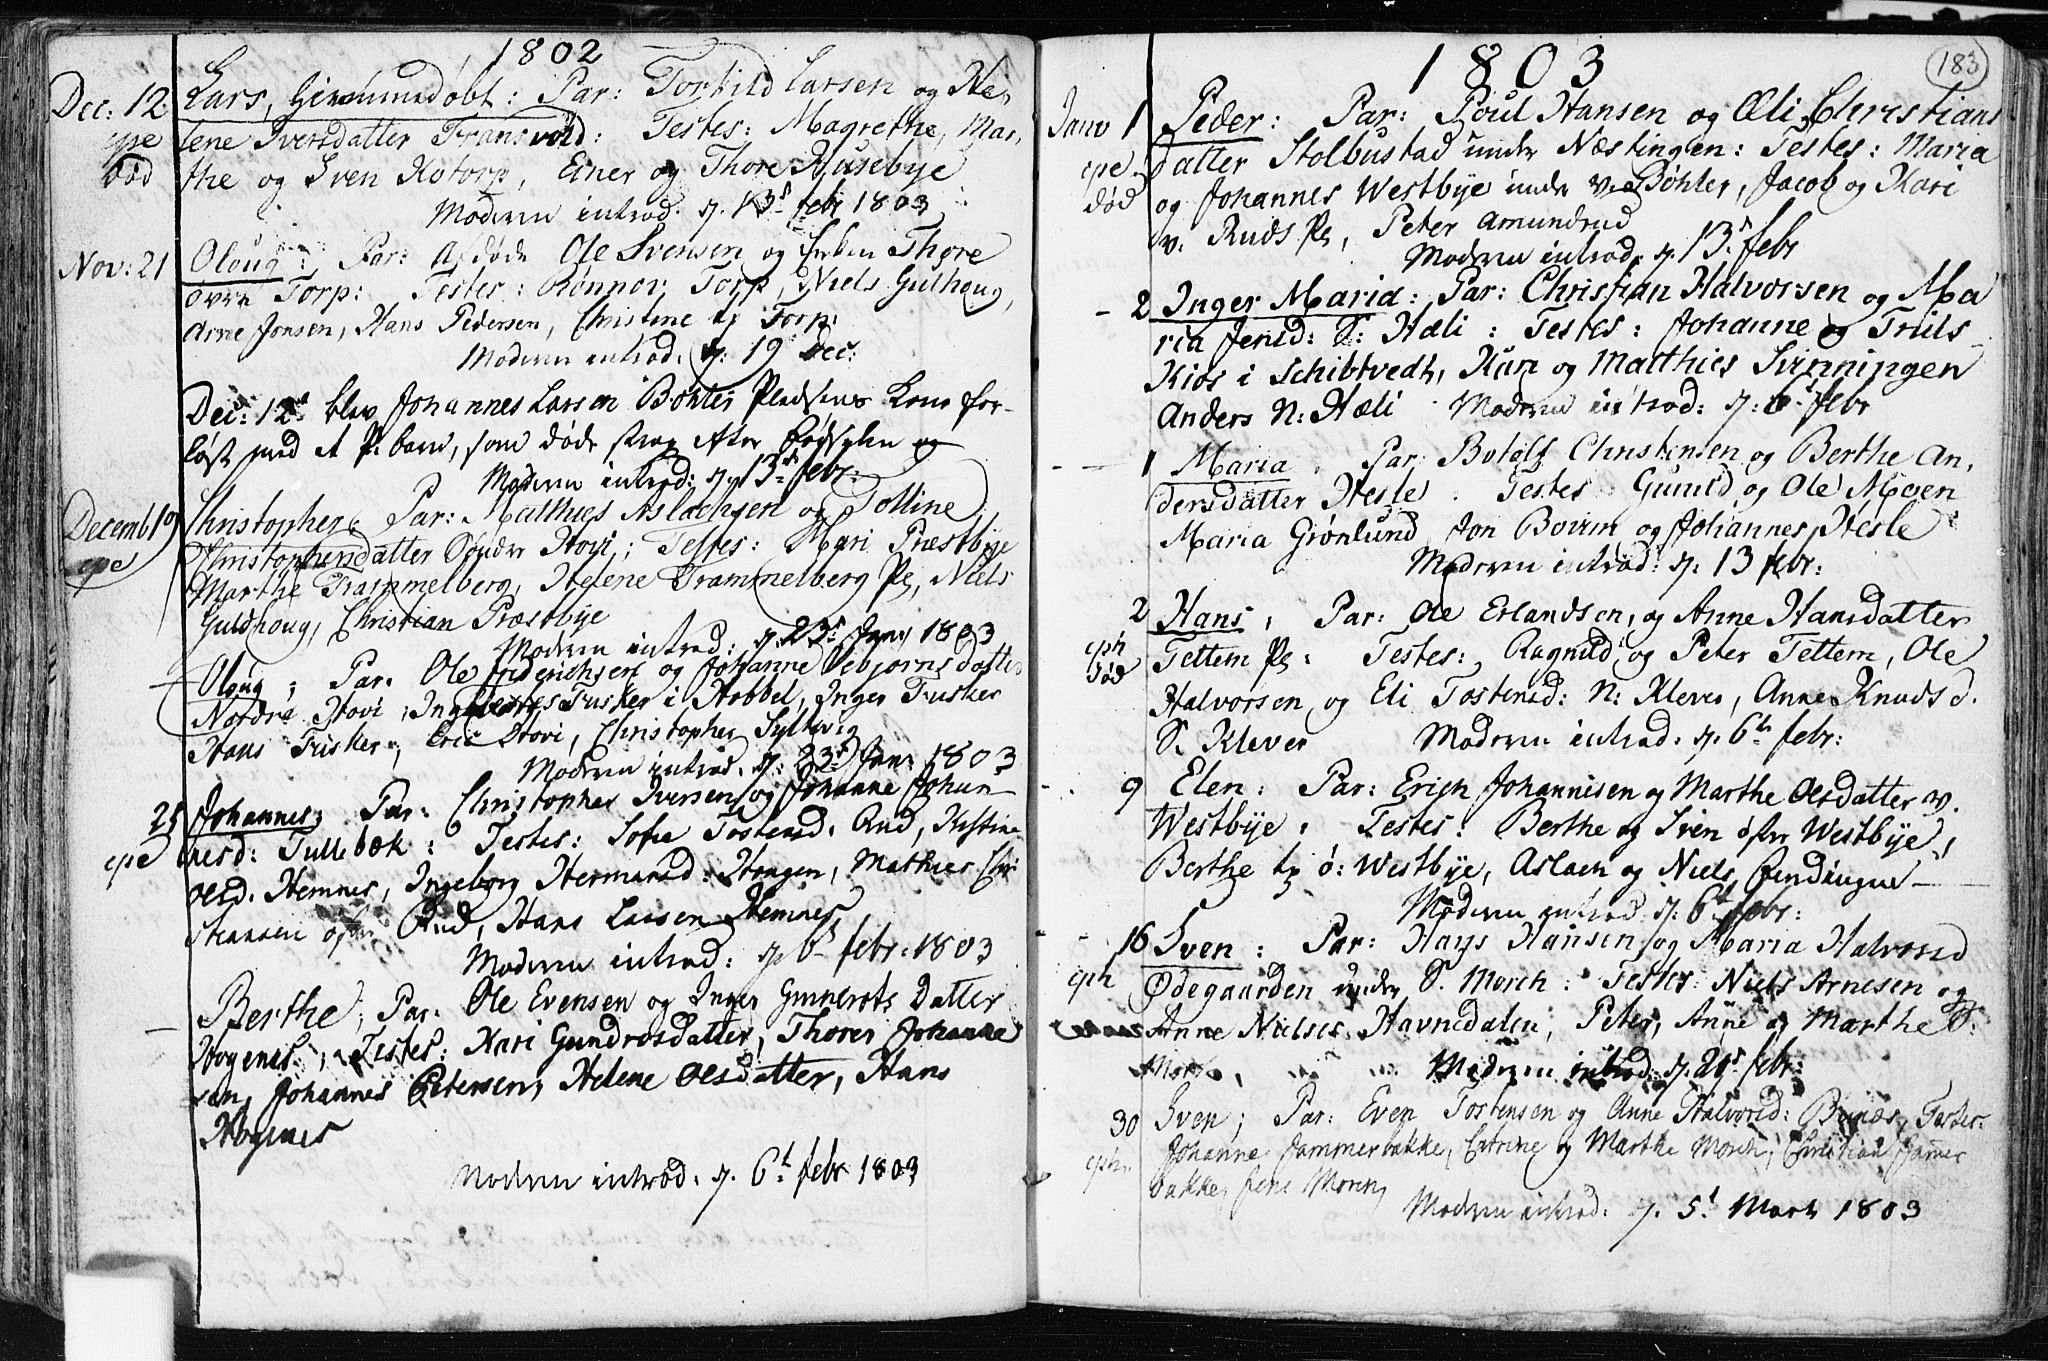 1802
Dec: 12 Lars, Hiemmedøbt: Par: Torkild Larsen og He,
epe lene Iversdatter Fransvold: Testes: Magrethe, Mar,
død the og Sven Kotorp, Einer og Thore Husebye
Moderen introd. d. 13d febr 1803
Nov: 21 Oloug: Par: Ole Svensen og Enken Thore
øvre Torp: Testes: Rønnov Torp, Niels Gulhoug,
Arne Jonsen, Hans Pedersen, Christine Torp:
Moderen introd: d: 19 Dec:
Dec: 12d blev Johannes Larsen Bøhler Pladsens Kone for-
løst med et P. barn, som døde strax efter Fødselen og
Moderen introd: d. 13d febr:
Decemb 19 Christopher, Par: Mathies Aslachsen og Tolline
epe Christophersdatter Søndre Hovi; Testes: Mari Præstbye
Marthe Trammelberg, Helene Trammelberg Pl, Niels
Guldhoug, Christian Præstbye
Moderen introd: d. 23d Jan 1803
— Oloug; Par. Ole Friderichsen og Johanne Vebjørnsdatter
Nordre Hovi, Tusker i Hobbel, Inger Tusker
Hans Tusker, Eric Hovi, Christopher
Moderen introd. d: 23d Jan: 1803
25 Johannes; Par: Christopher Iversen og Johanne Johan-
epe nesd: Tullebæk: Testes: Sofie Tostensd. Rud, Kistine
Olsd. Hemnes, Ingeborg Hermansd: Haagen, Mathies Chri
stensen Rud, Hans Larsen Hemnes,
Moderen introd: d. 6d febr: 1803
— Berthe; Par. Ole Evensen og Inger Gunnerots Datter
Hogenes; Testes: Kari Gundrosdatter, Thorer Johanne
Johannes Petersen, Helene Olsdatter, Hans
Hogenes
Moderen introd. d. 6t febr 1803
1803
183
Janv 1 Peder: Par: Poul Hansen og Æli Christians
epe datter Stolbustad under Næstingen: Testes: Maria
død og Johannes Westbye under Bøhler, Jacob og Kari
v. Ruds Pl, Peter Amundrud
Moderen introd. d. 13d febr
— 2 Inger Maria: Par: Christian Halvorsen og Ma
ria Jensd: S: Hæli: Testes: Johanne og Truls
Kiøs i Schibtvedt, Kari og Matthies Svinningen
Anders N: Hæli Moderen introd: d: 6t febr
— 1 Maria. Par Botolf Christensen og Berthe An,
dersdatter Hesle. Testes: Gunild og Ole Moen
Maria Grønlund Jon Boium og Johannes Hesle
Moderen introd: d. 13 febr:
2 Hans; Par: Ole Erlandsen, og Anne Hansdatter
eph Tettem Pl: Testes: Ragnild og Peter Tettem, Ole
død Halvorsen og Eli Tostensd: N: Klever, Anne Knudsd.
S. Klever Moderen introd: d. 6t febr:
9 Elen: Par: Erich Johannisen og Marthe Olsdatter v.
Westbye: Testes: Berthe og Sven øfre Westbye,
Berthe ø: Westbye, Aslach og Niels
Moderen introd: d. 6t febr:
16 Sven: Par: Hans Hansen og Maria Halvorsd
eph Ødegaarden under S. Morch: Testes: Niels Arnesen og
Anne Nielses Havnedalen, Peter, Anne og Marthe S:
Morch, Moderen introd: d. febr:
30 Sven; Par: Even Tostensen og Anne Halvorsd: Testes:
eph. Johanne Jammerbakke, Catrine og Marthe Morch, Christian Jamer
bakke, Jens Moren,
Moderen introd: d. 5t Mart 1803